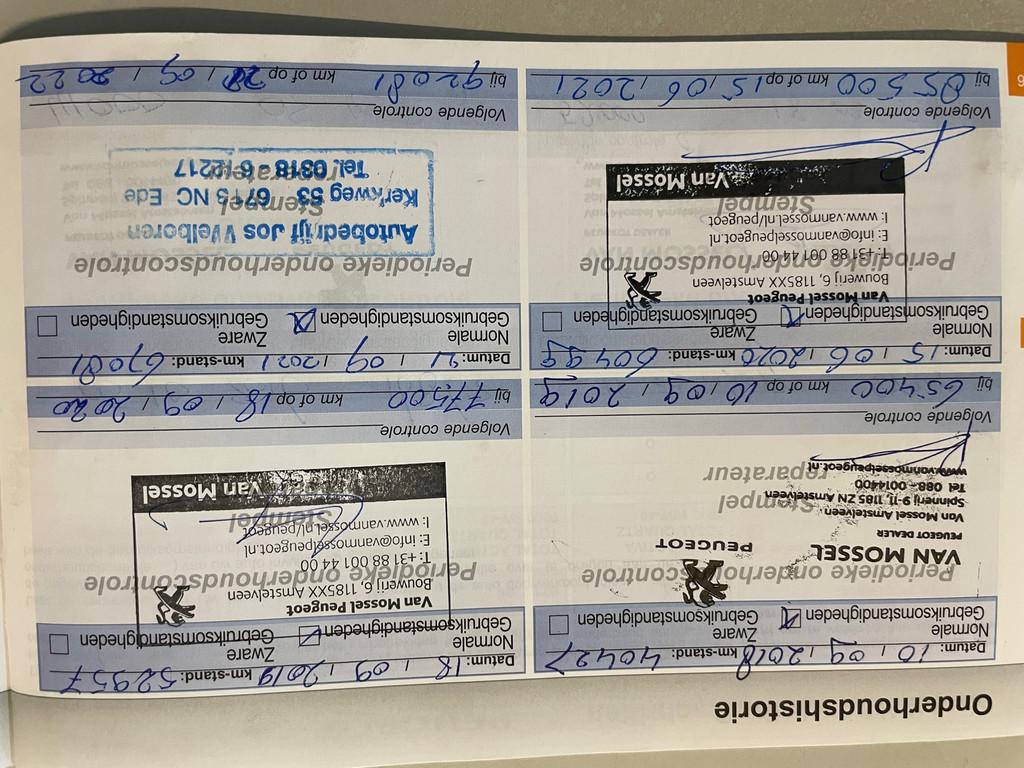 Onderhoudshistorie
Datum: 10 / 09 / 2018 km-stand: 40427
Normale Gebruiksomstandigheden Zware Gebruiksomstandigheden
Periodieke onderhoudscontrole
PEUGEOT
VAN MOSSEL
PEUGEOT DEALER
Van Mossel Amstelveen
Spinnerij 9-11, 1185 ZN Amstelveen
Tel. 088 - 0014400
www.vanmosselpeugeot.nl
Stempel
reparateur
Volgende controle
bij 65400 km of op 10 / 09 / 2019
Datum: 18 / 09 / 2019 km-stand: 52957
Normale Gebruiksomstandigheden Zware Gebruiksomstandigheden
Periodieke onderhoudscontrole
Van Mossel Peugeot
Bouwerij 6, 1185XX Amstelveen
T: +31 88 001 44 00
E: info@vanmosselpeugeot.nl
I: www.vanmossel.nl/peugeot
Van Mossel
Stempel
Volgende controle
bij 77500 km of op 18 / 09 / 2020
Datum: 15 / 06 / 2020 km-stand: 60499
Normale Gebruiksomstandigheden Zware Gebruiksomstandigheden
Van Mossel Peugeot
Bouwerij 6, 1185XX Amstelveen
Periodieke onderhoudscontrole
T: +31 88 001 44 00
E: info@vanmosselpeugeot.nl
I: www.vanmossel.nl/peugeot
Stempel
Van Mossel
Volgende controle
bij 85500 km of op 15 / 06 / 2021
Datum: 21 / 09 / 2021 km-stand: 67081
Normale Gebruiksomstandigheden Zware Gebruiksomstandigheden
Periodieke onderhoudscontrole
Autobedrijf Jos Welboren
Stempel
Kerkweg 53 6713 NC Ede
reparateur
Tel. 0318 - 612217
Volgende controle
bij 92081 km of op / 09 / 2022